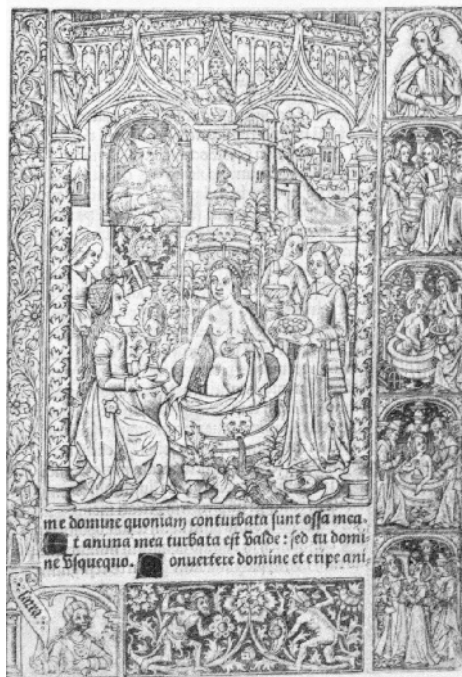 me domine quoniam conturbata sunt ossa mea.
t anima mea turbata est valde: sed tu domi-
ne vsquequo. onuertere domine et eripe ani-